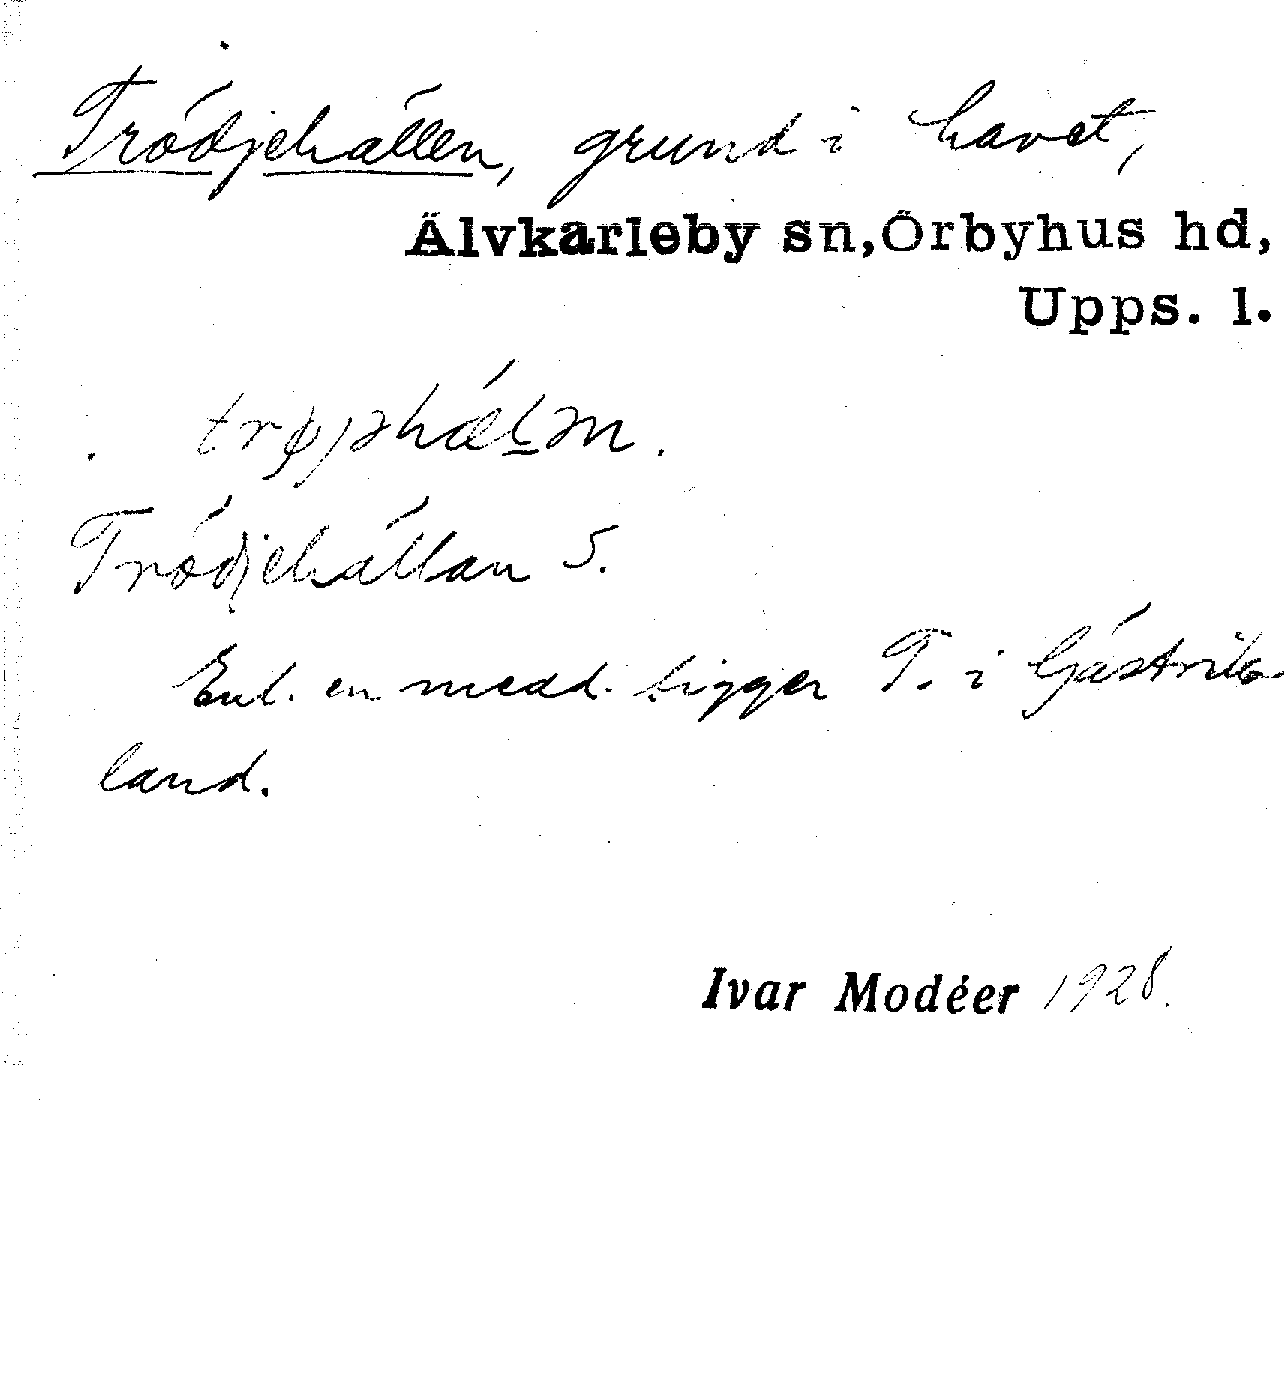 Trödjehällen, grund i havet,
Älvkarleby sn, Örbyhus hd,
Upps. l.
Trödjehällan 5.
Enl. en medd. ligger T. i Gästrik
land.
Ivar Modéer 1928.